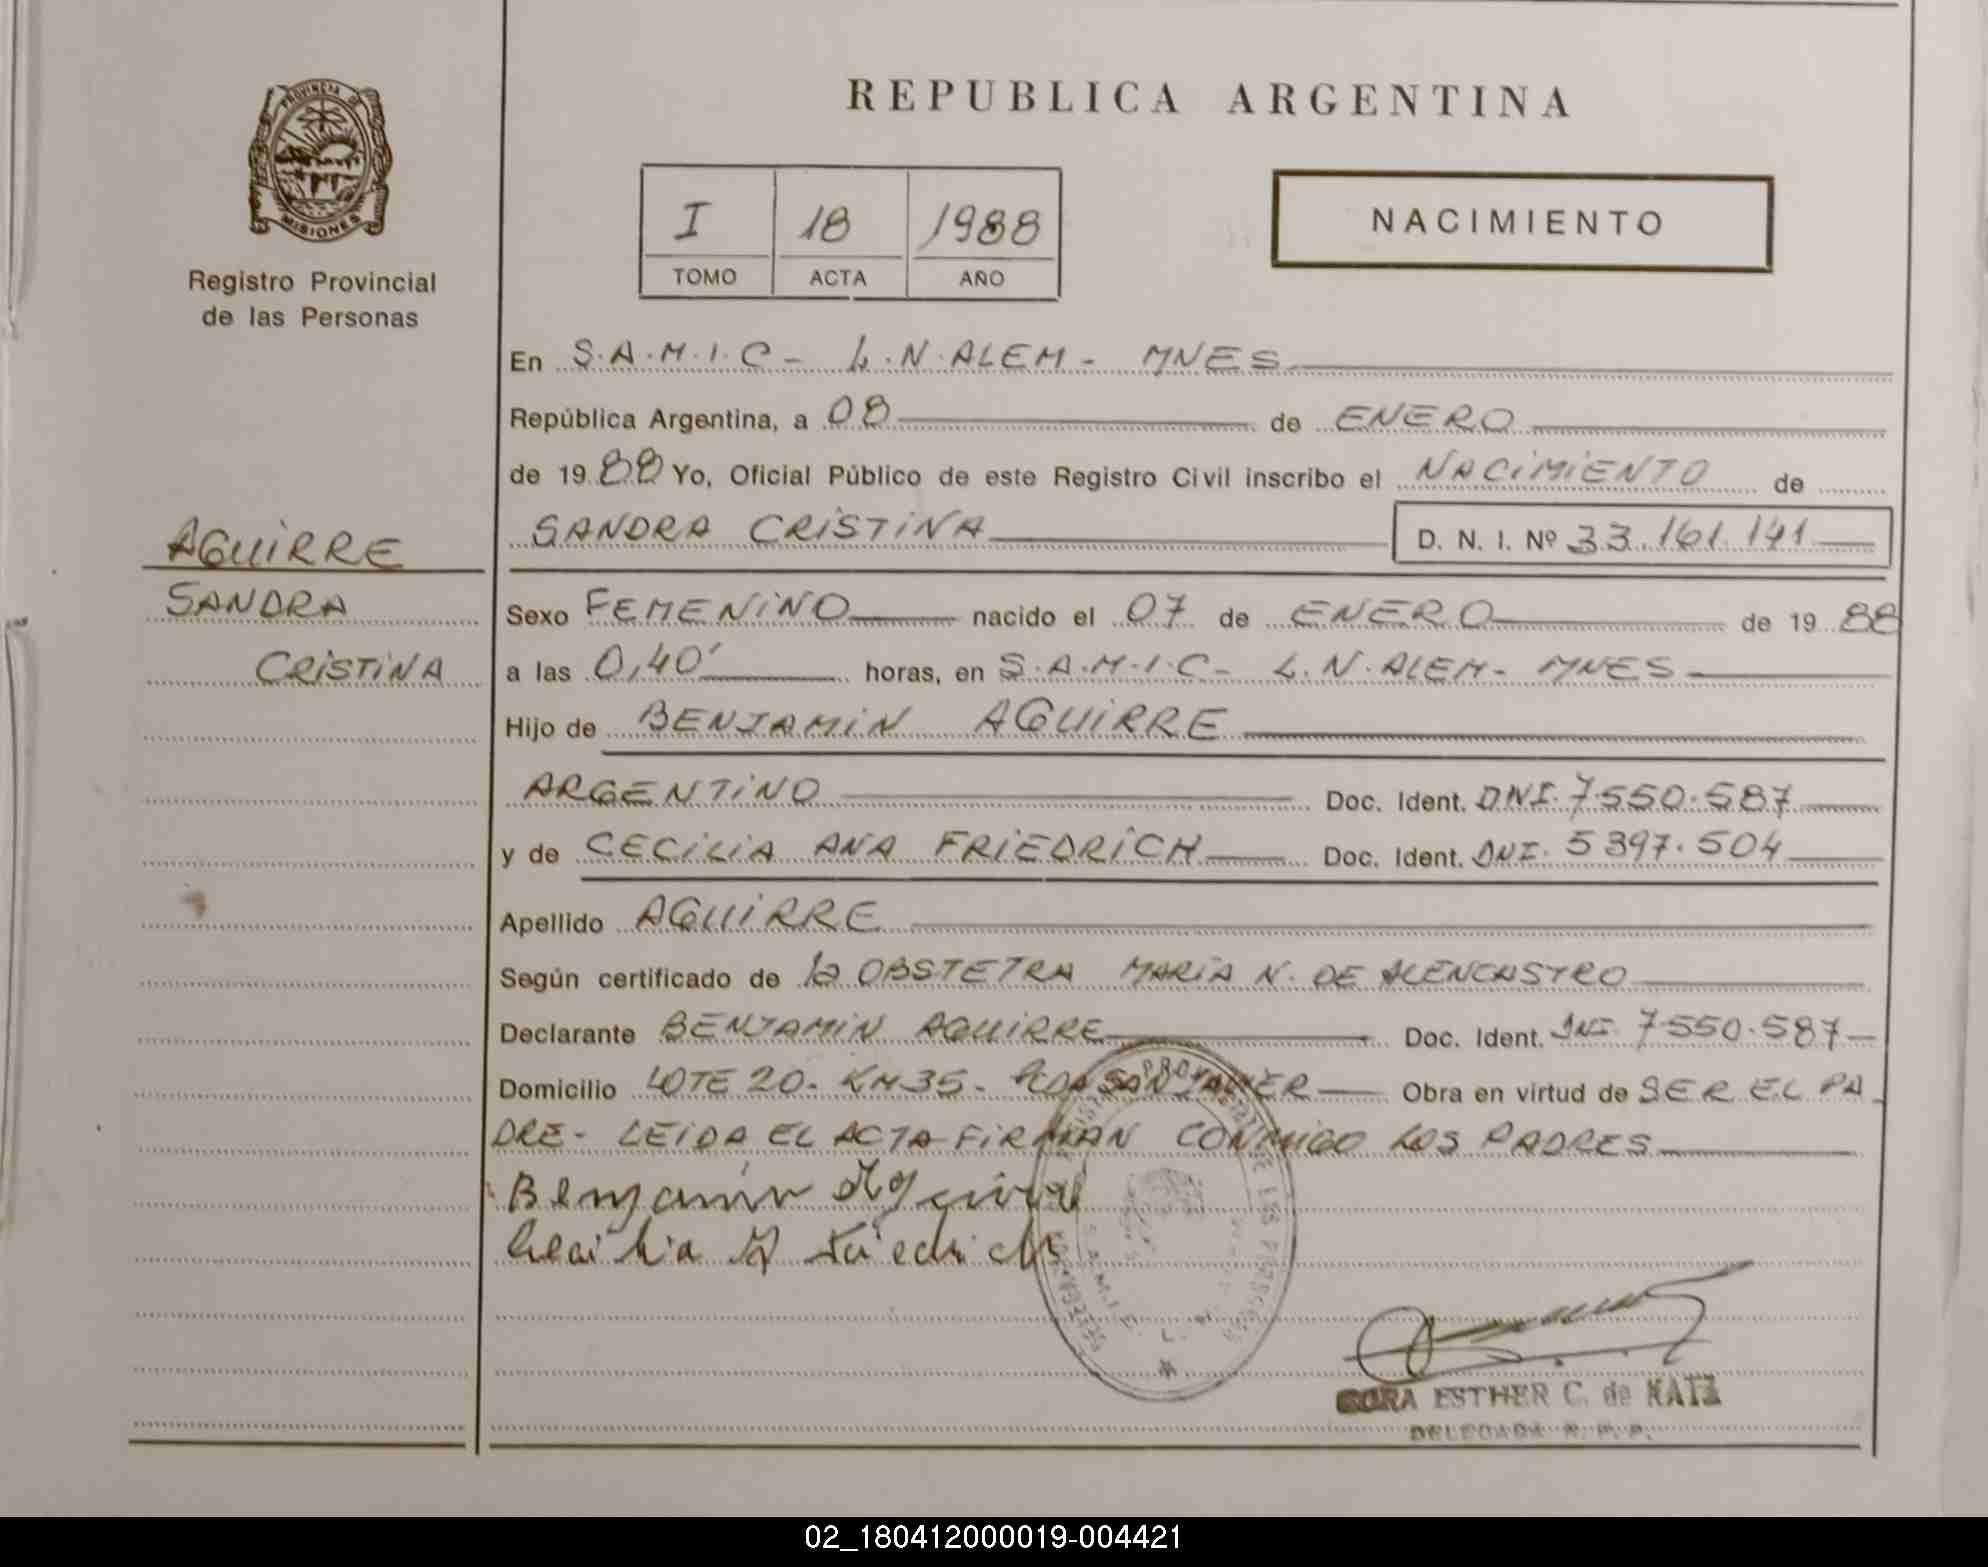 REPUBLICA ARGENTINA
PROVINCIA DE
MISIONES
Registro Provincial
de las Personas
I 18 1988
TOMO ACTA AÑO
NACIMIENTO
En S.A.M.I.C - L.N.ALEM - MNES
República Argentina, a 08 de ENERO
de 1988 Yo, Oficial Público de este Registro Civil inscribo el NACIMIENTO de
SANDRA CRISTINA D. N. I. Nº 33.161.141
AGUIRRE
SANDRA
CRISTINA
Sexo FEMENINO nacido el 07 de ENERO de 1988
a las 0,40' horas, en S.A.M.I.C - L.N.ALEM - MNES
Hijo de BENJAMIN AGUIRRE
ARGENTINO Doc. Ident. DNI. 7550.587
y de CECILIA ANA FRIEDRICH Doc. Ident. DNI. 5397.504
Apellido AGUIRRE
Según certificado de la OBSTETRA MARIA N. DE ALENCASTRO
Declarante BENJAMIN AGUIRRE Doc. Ident. DNI. 7550.587
Domicilio LOTE 20 - KM 35 - SAN JAVIER Obra en virtud de SER EL PA
DRE - LEIDA EL ACTA FIRMAN CONMIGO LOS PADRES
Benjamin Aguirre
Cecilia A Friedrich
ESTHER C. de KATZ
DELEGADA R. P. P.
02_180412000019-004421